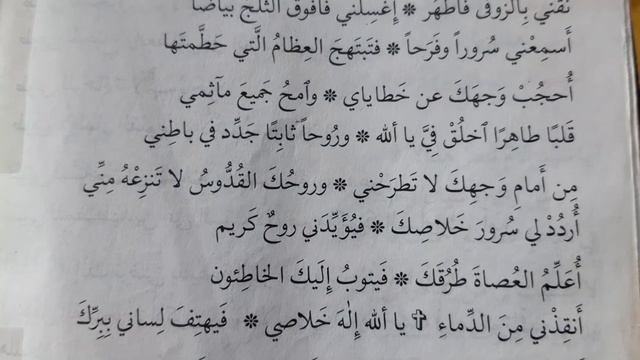 نَقِّني بِالزوفى فَأَطهُر ❊ إِغسِلني فَأَفوقَ الثَلجَ بَياضًا
أَسمِعْني سُروراً وفَرَحاً ❊ فَتَبتَهِجَ العِظامُ الَّتي حَطَّمتَها
أُحجُبْ وَجهَكَ عن خَطاياي ❊ وٱمحُ جَميعَ مآثِمي
قَلبًا طاهِرًا ٱخلُقْ فِيَّ يا ألله ❊ ورُوحاً ثابِتًا جَدِّد في باطِني
مِن أَمامِ وَجهِكَ لا تَطرَحْني ❊ وروحُكَ القُدُّوسُ لا تَنزِعْهُ مِنِّي
أُردُدْ لي سُرورَ خَلاصِكَ ❊ فَيُؤَيِّدَني روحٌ كَريم
أُعَلِّمُ العُصاةَ طُرُقَكَ ❊ فَيَتوبُ إِلَيكَ الخاطِئون
أَنقِذْني مِنَ الدِّماءِ ✞ يا ألله إِلٰهَ خَلاصي ❊ فَيَهتِفَ لِساني بِبِرِّكَ